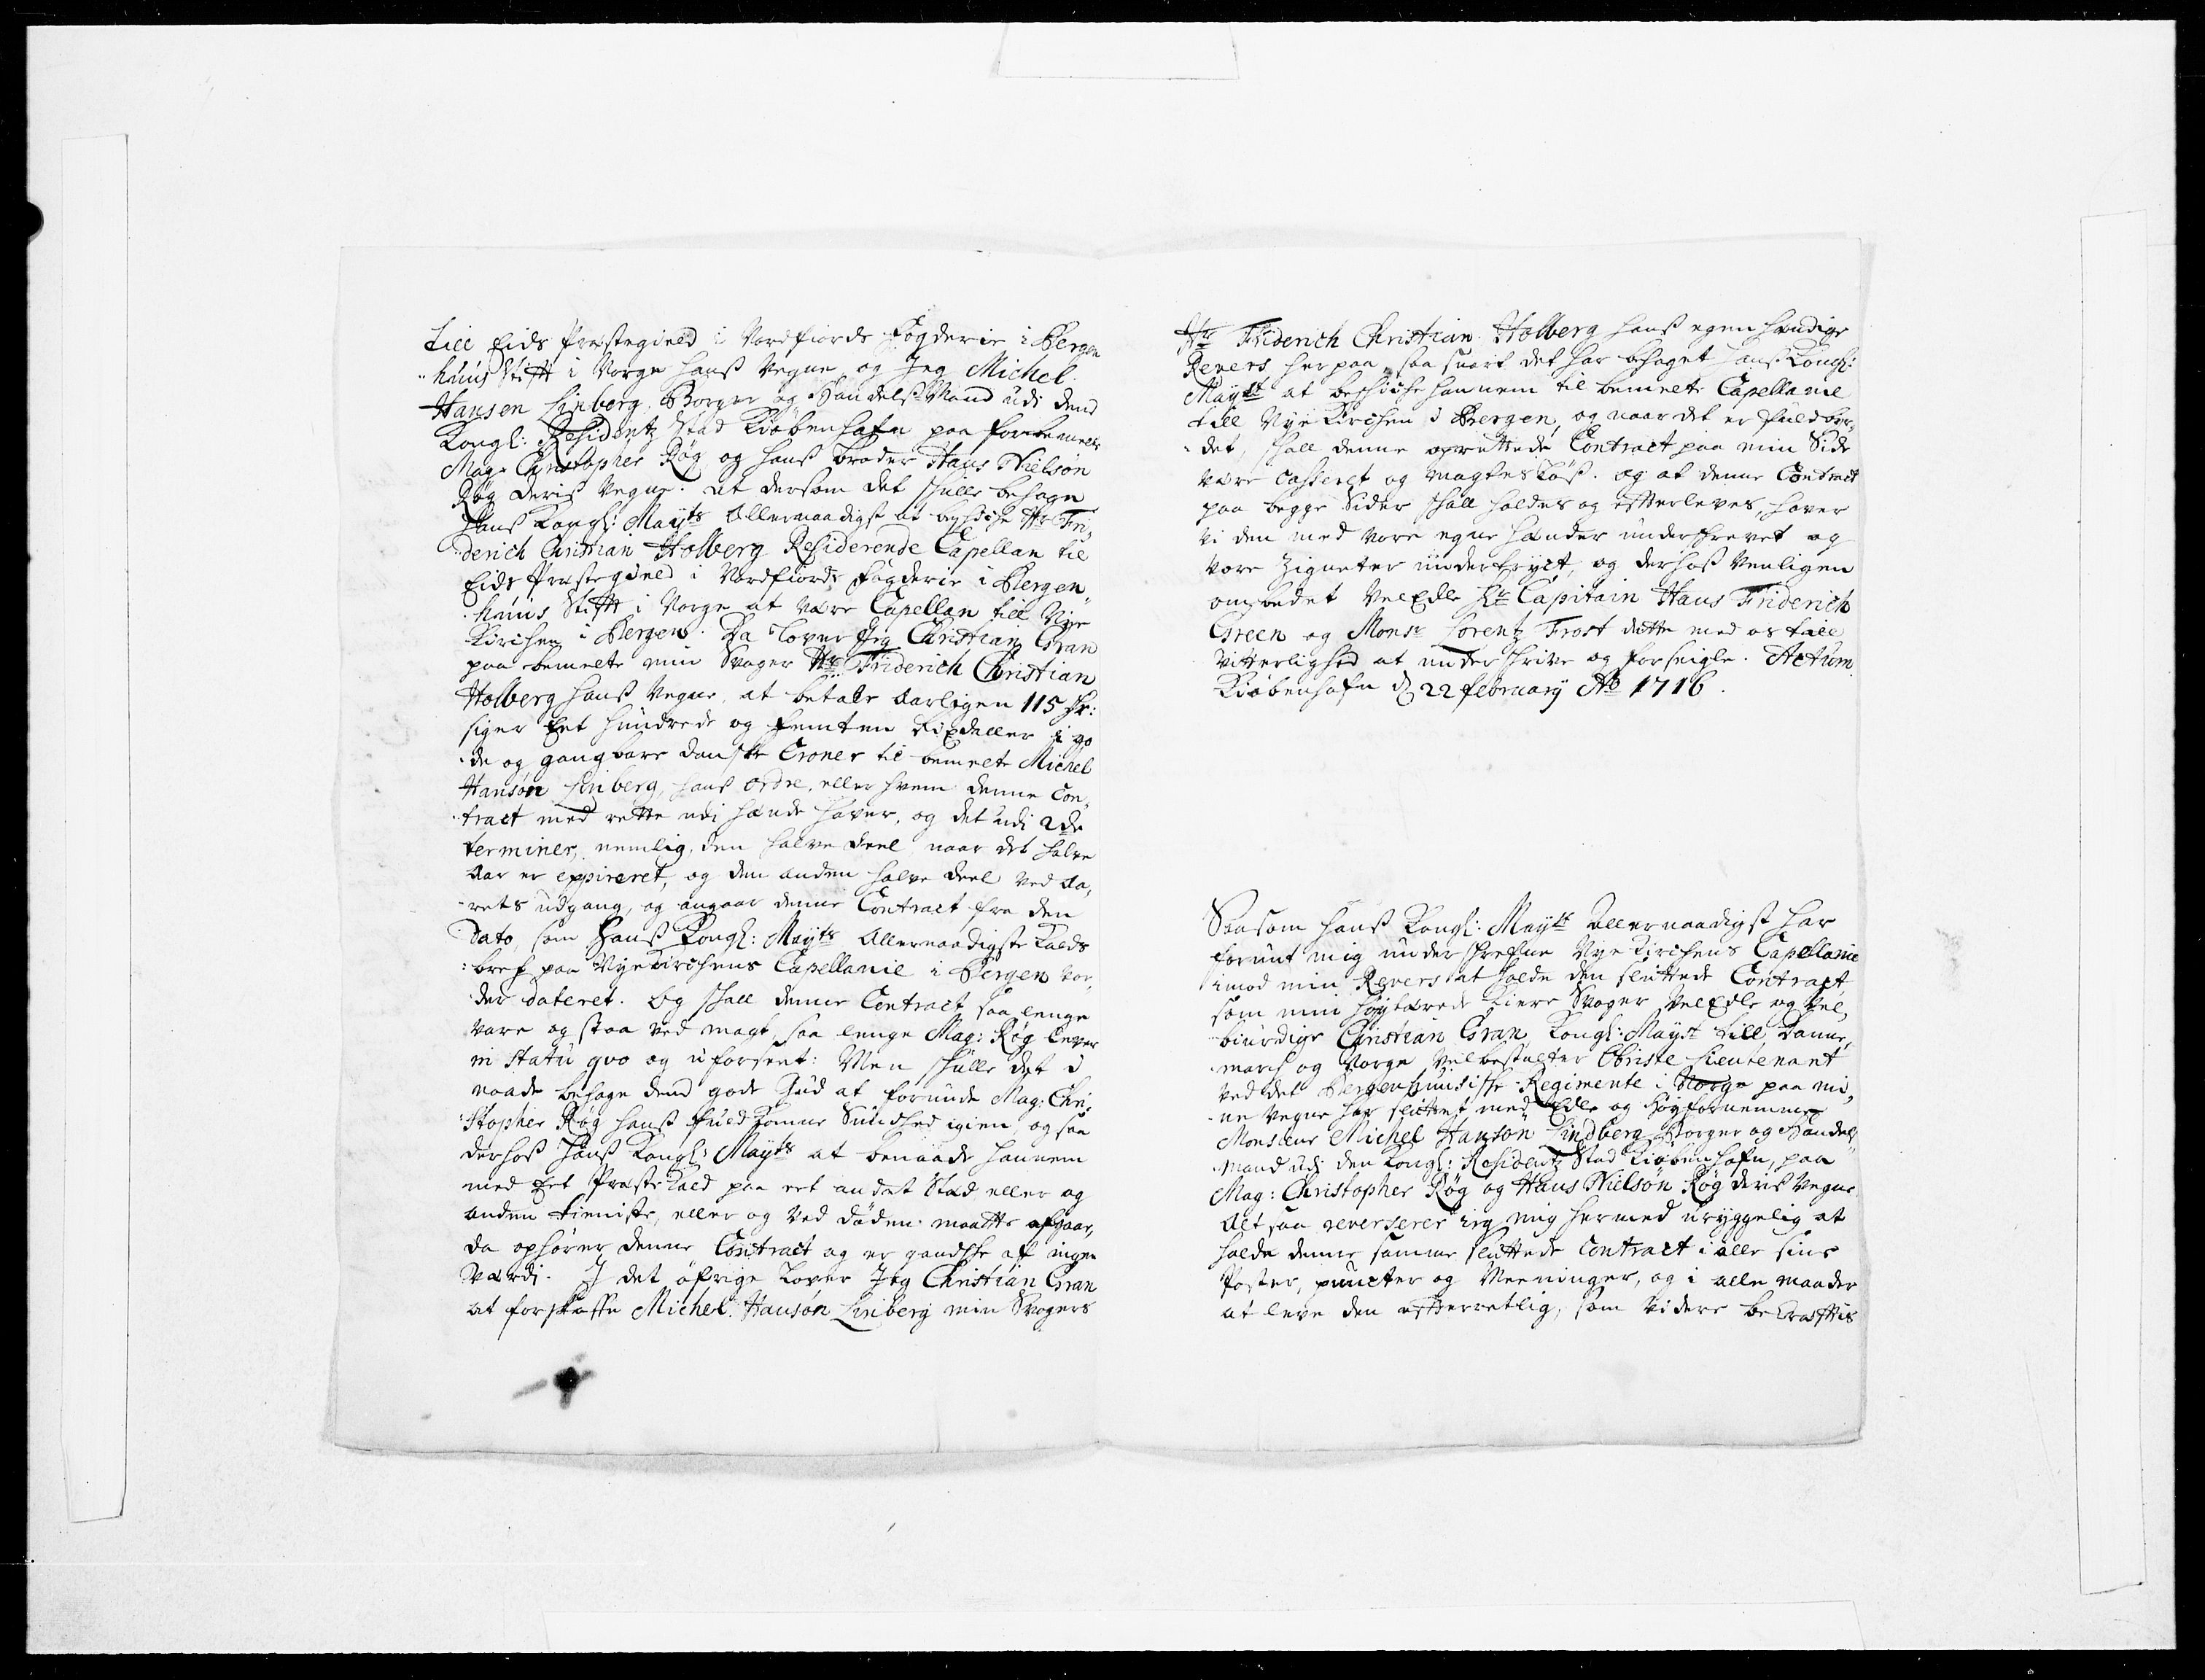 till Eids Præstegield i Nordfiords Fogderie i Bergen
huus Stift i Norge hanß Vegne, og Jeg Michel
Hansen Linberg Borger og HandelsMand udi dend
Kongl: Residentz Stad Kiøbenhafn paa forbemelte
Mag: Christopher Røg og hanß broder Hans Nielsøn
Røg deris Vegne. at dersom det skulle behage
Hanß Kongl: Mayts Allernaadigst at beskicke Hr Fri,
derich Christian Holberg Residerende Capellan til
Eids Præstegield i Nordfiords Fogderie i Bergen,,
huus Stift i Norge at være Capellan till Nye
Kirchen i Bergen. Da Lover Jeg Christian Gran
paa bemelte min Svager Hr: Friderich Christian
Holberg hanß Vegne, at betale Aarligen 115 Rdr:
siger Eet hundrede og femten Rixdaller i go
de og gangbare danske Croner til bemelte Michel
Hansøn Linberg, hans ordre, eller hvem denne Con,
tract med rette udi hænde haver, og det udi 2de
terminer, nemlig, den halve deel naar det halve
Aar er expireret, og den anden halve deel ved Aa,
rets udgang, og angaar denne Contract fra den
Dato, som Hanß Kongl: Mayts Allernaadigste Kalds
bref paa Nyekirchens Capellanie i Bergen vor,
der dateret. Og skall denne Contract saa lenge
vare og staa ved magt, saa lenge Mag: Røg lever
in statu qvo og uforseet: Men skulle det i
naade behage dend gode Gud at forunde Mag: Chri,
stopher Røg hanß fuldkomne Sundhed igien, og saa
derhoß Hanß Kongl: Mayts at benaade hannem
med Eet Præste Kald paa eet andet Stæd eller og
anden tieniste, eller og ved døden maatte afgaar,
da ophører denne Contract og er gandske af ingen
Værdi. I det øfrige Lover Jeg Christian Gran
at forskaffe Michel Hansøn Linberg min Svogers
Hr Friderich Christian Holberg hanß egen hændige
Revers her paa, saa snart det har behaget Hans Kongl:
Maytt at beskicke hannem til bemelte Capellanie
till Nye Kirchen i Bergen, og naar det er fuldbyr,
det, skall denne oprettede Contract paa min Side
være Casseret og magtesløß. og at denne Contract
paa begge Sider skall holdes og efterleves, haver
vi den med vore egne hænder underskrevet og
vore Zigneter undertryct, og derhoß venligen
ombedet VelEdle Hr Capitain Hans Friderich
Green og Monsr Lorentz Frost dette med os till
Vitterlighed at underskrive og forseigle. Actum
Kiøbenhafn d 22 february Ao 1716.
Saasom Hanß Kongl: Maytt Allernaadigst har
forunt mig underskrefne Nye Kirchens Capellanie
imod min Revers at holde den sluttede Contract
som min høytærede Kiere Svoger VelEdle og Vel,
biurdige Christian Gran, Kongl: Mayst till Danne,
march og Norge Velbestalter Obriste Lieutenant
ved det Bergenhuusiske Regimente i Norge paa mi,
ne vegne har sluttet med Edle og Høyfornemme
Monsieur Michel Hansøn Lindberg Borger og Handels,,
mand udi den Kongl: Residentz Stad Kiøbenhafn, paa
Mag: Christopher Røg og Hans Nielsøn Røg deris Vegne
Alt saa reverserer ieg mig hermed uryggelig at
holde denne samme sluttede Contract i alle sine
Poster, puncter og Meeninger, og i alle maader
at leve den efterretlig, som videre bekræfttis